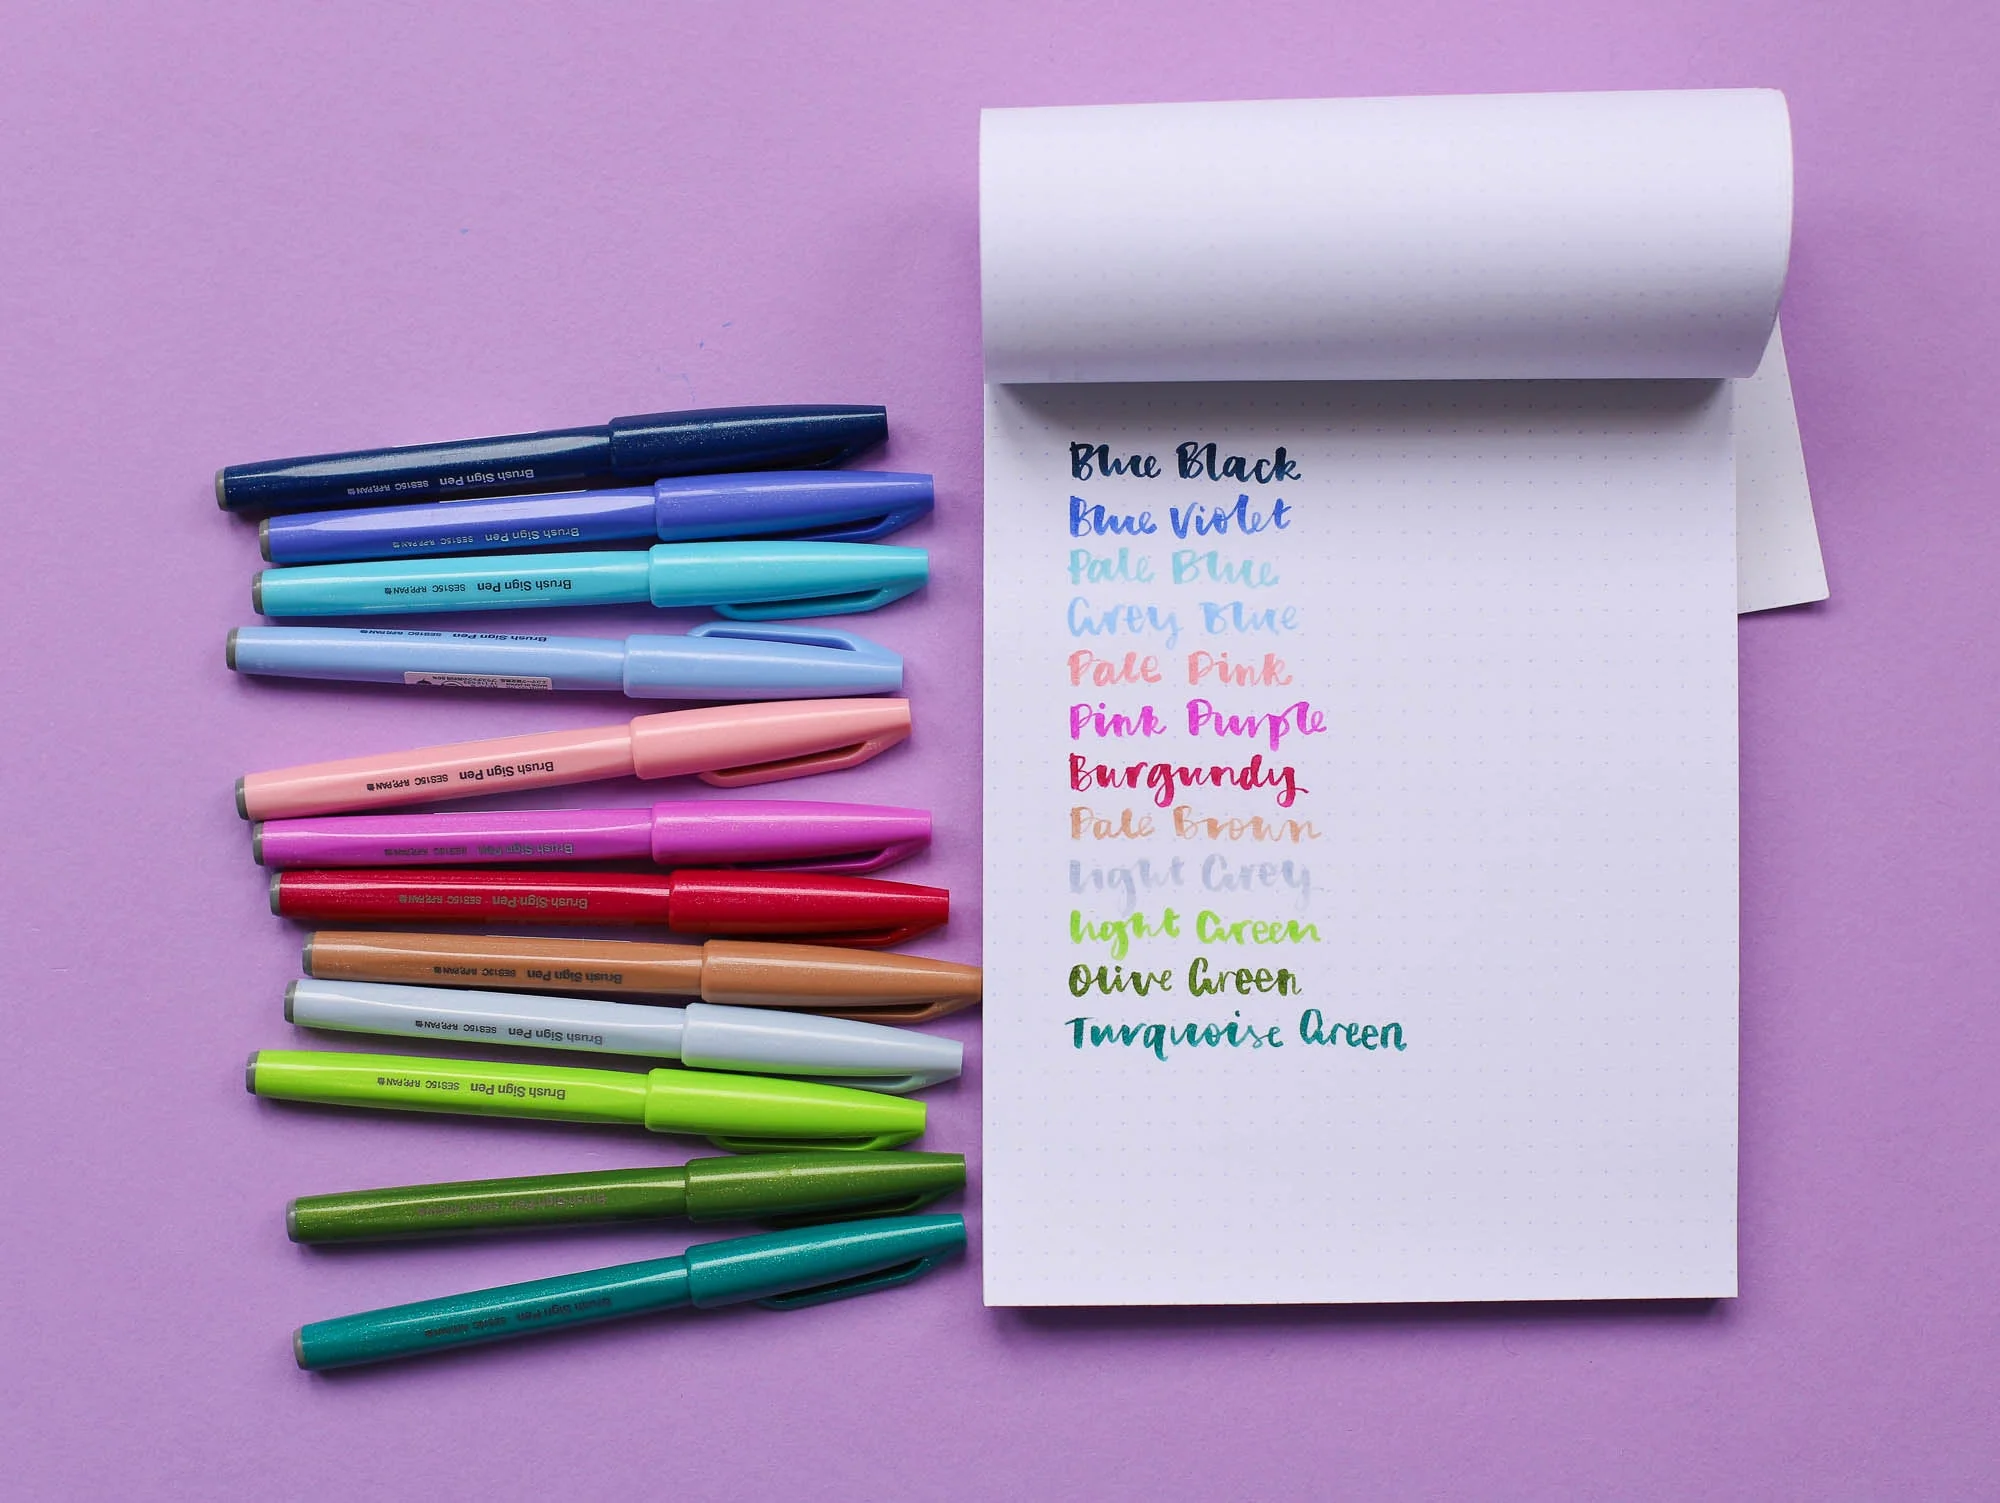 Brush Sign Pen SES15C R.P.P,PAN
Brush Sign Pen SES15C R.P.P,PAN
Brush Sign Pen SES15C R.P.P,PAN
Brush Sign Pen SES15C R.P.P,PAN
Brush Sign Pen SES15C R.P.P,PAN
Brush Sign Pen SES15C R.P.P,PAN
Brush Sign Pen SES15C R.P.P,PAN
Brush Sign Pen SES15C R.P.P,PAN
Brush Sign Pen SES15C R.P.P,PAN
Brush Sign Pen SES15C R.P.P,PAN
Brush Sign Pen
Brush Sign Pen SES15C
Blue Black
Blue Violet
Pale Blue
Grey Blue
Pale Pink
Pink Purple
Burgundy
Pale Brown
Light Grey
Light Green
Olive Green
Turquoise Green